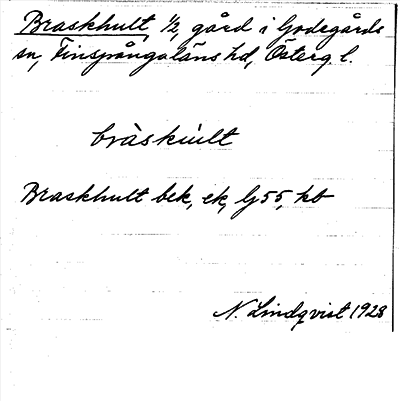 Braskhult, 1/2, gård i Godegårds
sn, Finspångaläns hd, Österg. l.
bràskúlt
Braskhult bek, ek, Gj 55, kb
N. Lindqvist 1928